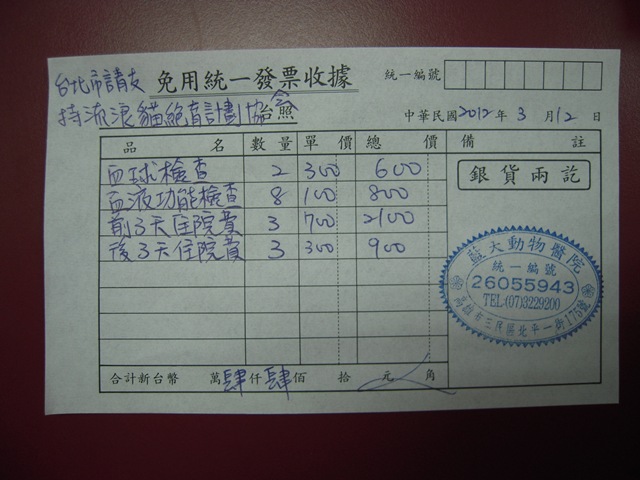 台北市請支 免用統一發票收據 統一編號
持流浪貓絕育計劃協會 台照 中華民國2012年3月12日
品名 數量 單價 總價 備註
血球檢查 2 300 600
銀貨兩訖
血液功能檢查 8 100 800
前3天住院費 3 700 2100
後3天住院費 3 300 900
藍天動物醫院
統一編號
26055943
TEL:(07)3229200
高雄市三民區北平一街175號
合計新台幣 萬肆仟肆佰 拾 元 角